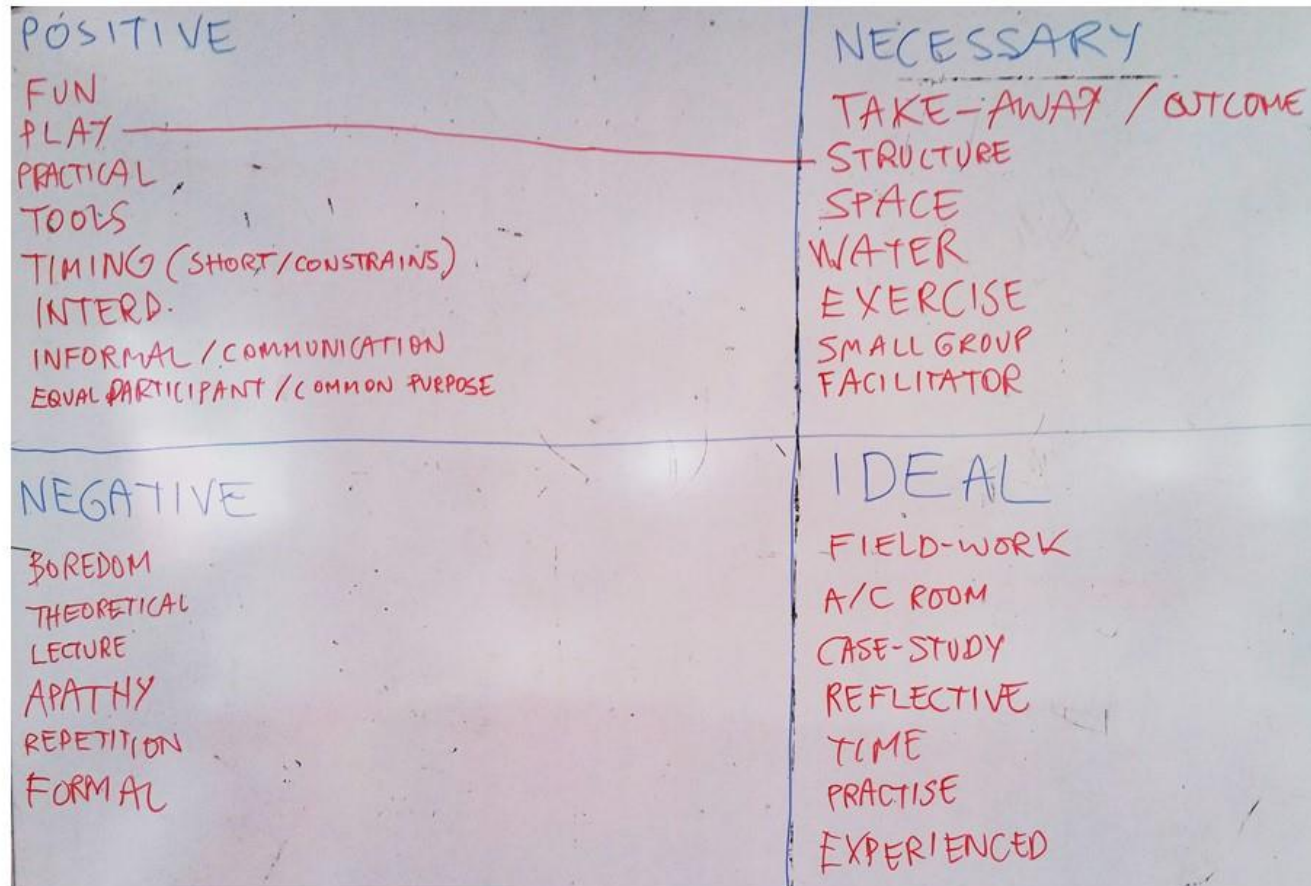 POSITIVE
FUN
PLAY
PRACTICAL
TOOLS
TIMING (SHORT/CONSTRAINS)
INTERD.
INFORMAL / COMMUNICATION
EQUAL PARTICIPANT / COMMON PURPOSE
NECESSARY
TAKE-AWAY / OUTCOME
STRUCTURE
SPACE
WATER
EXERCISE
SMALL GROUP
FACILITATOR
NEGATIVE
BOREDOM
THEORETICAL
LECTURE
APATHY
REPETITION
FORMAL
IDEAL
FIELD-WORK
A/C ROOM
CASE-STUDY
REFLECTIVE
TIME
PRACTISE
EXPERIENCED